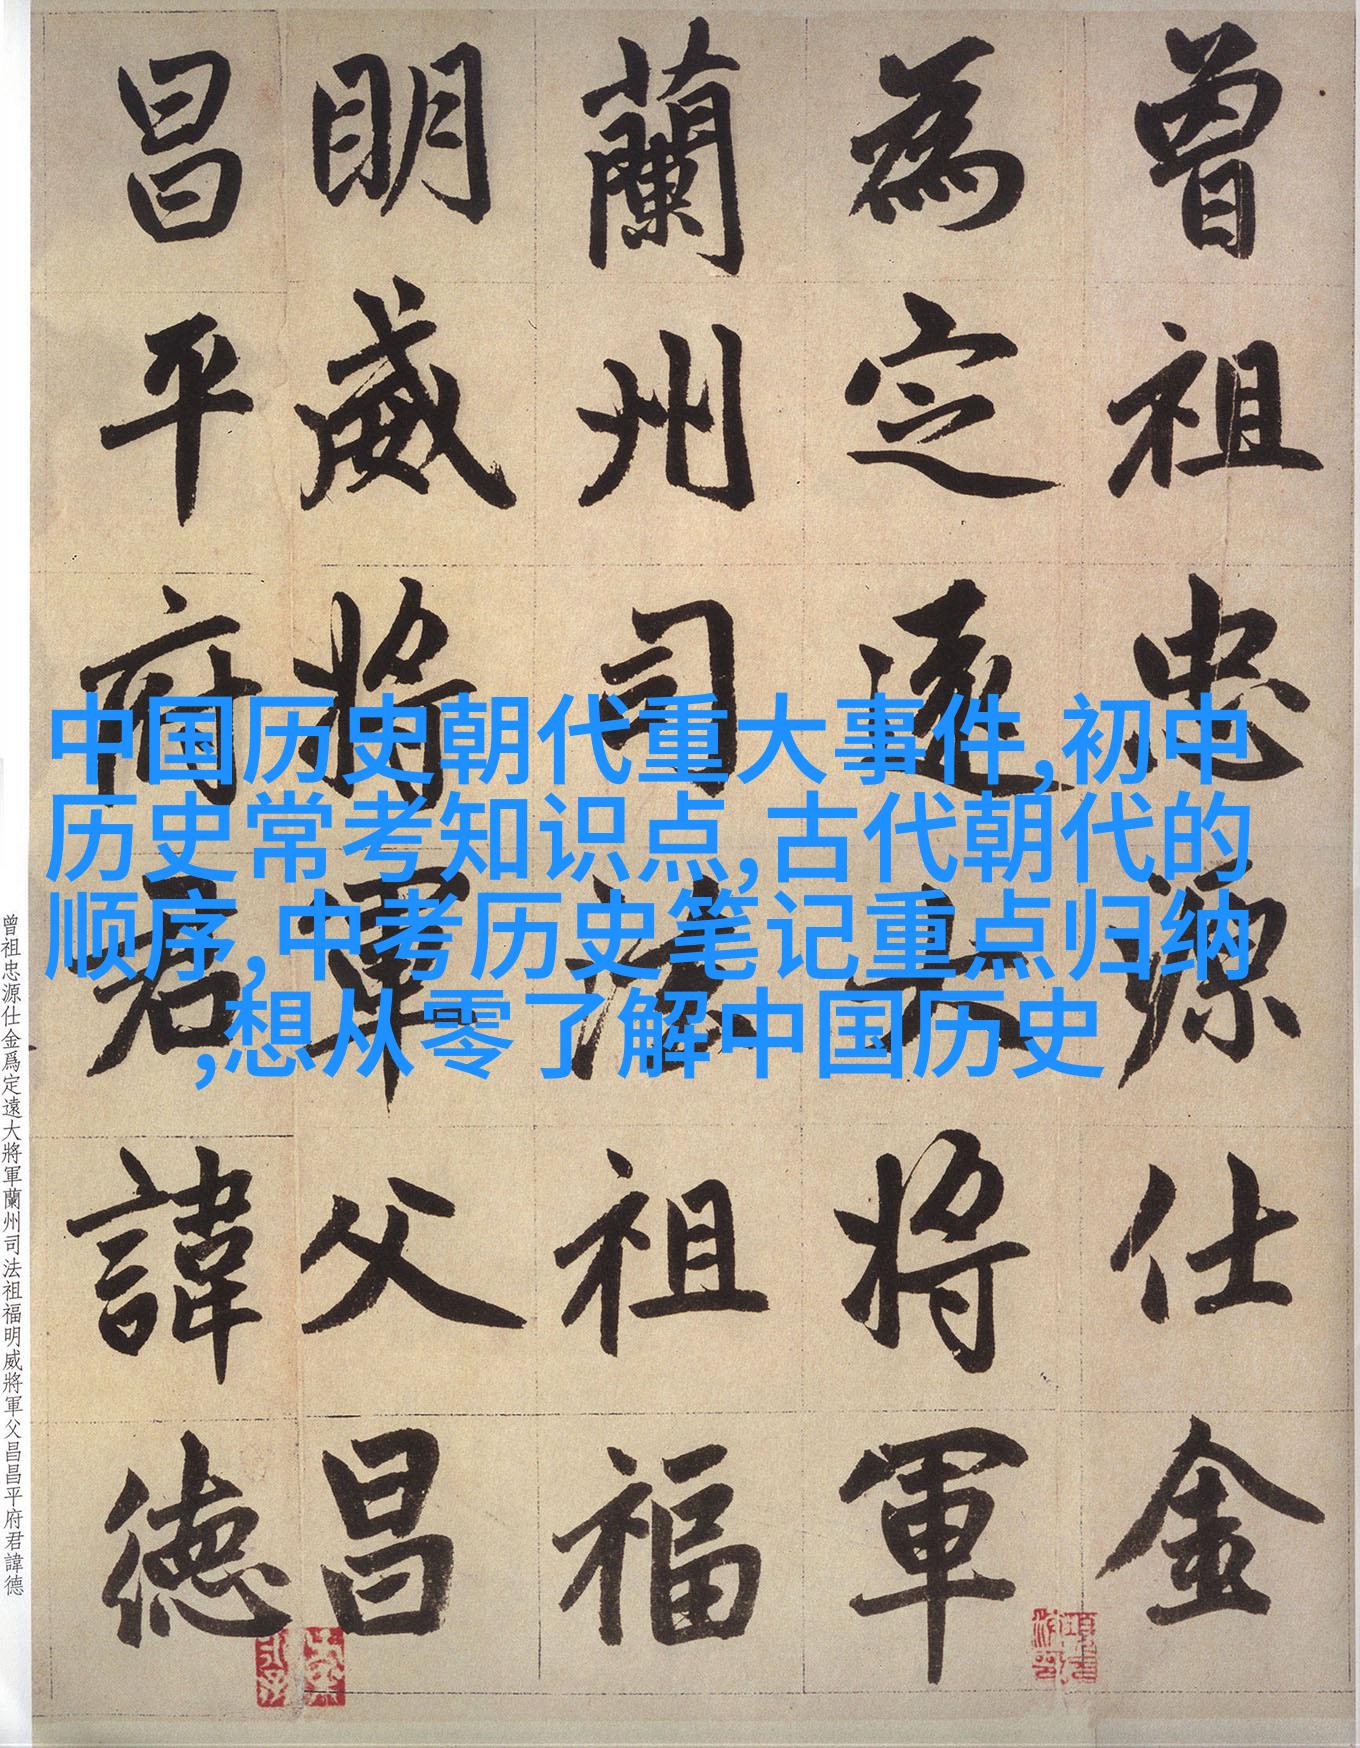 曾祖忠源仕金
為定遠大將軍
蘭州司法祖福
明威將軍父昌
昌平府君諱德
中国历史朝代重大事件,初中
历史常考知识点,古代朝代的
顺序,中考历史笔记重点归纳
,想从零了解中国历史
曾祖忠源仕金爲定遠大將軍蘭州司法祖福明威將軍父昌昌平府君諱德